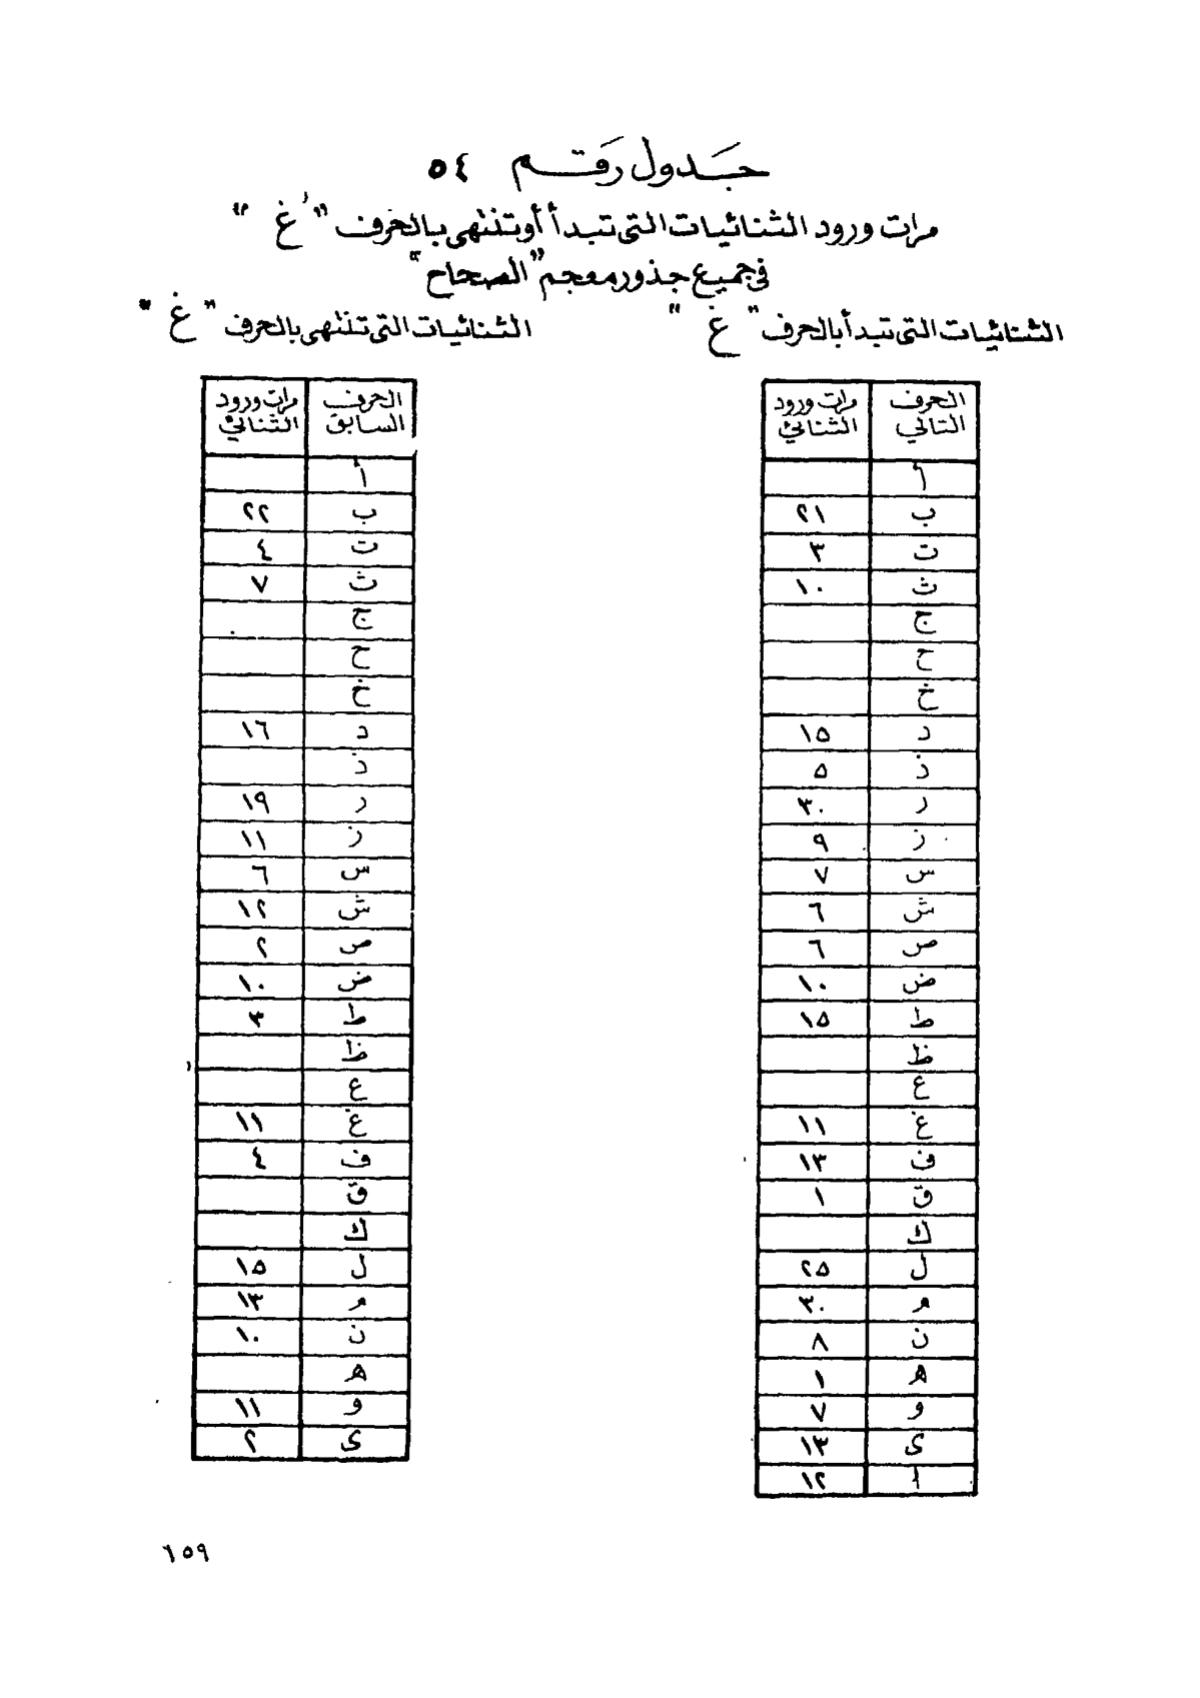 جدول رقم ٥٤
مرات ورود الثنائيات التى تبدأ أو تنتهى بالحرف "غ"
فى جميع جذور معجم "الصحاح"
الثنائيات التى تبدأ بالحرف "غ"
الحرف التالي | مرات ورود الثنائي
أ
ب ٢١
ت ٣
ث ١٠
ج
ح
خ
د ١٥
ذ ٥
ر ٣٠
ز ٩
س ٧
ش ٦
ص ٦
ض ١٠
ط ١٥
ظ
ع
غ ١١
ف ١٣
ق ١
ك
ل ٢٥
م ٣٠
ن ٨
ه ١
و ٧
ى ١٣
ا ١٢
الثنائيات التى تنتهى بالحرف "غ"
الحرف السابق | مرات ورود الثنائي
أ
ب ٢٢
ت ٤
ث ٧
ج
ح
خ
د ١٦
ذ
ر ١٩
ز ١١
س ٦
ش ١٢
ص ٢
ض ١٠
ط ٣
ظ
ع
غ ١١
ف ٤
ق
ك
ل ١٥
م ١٣
ن ١٠
ه
و ١١
ى ٢
١٥٩